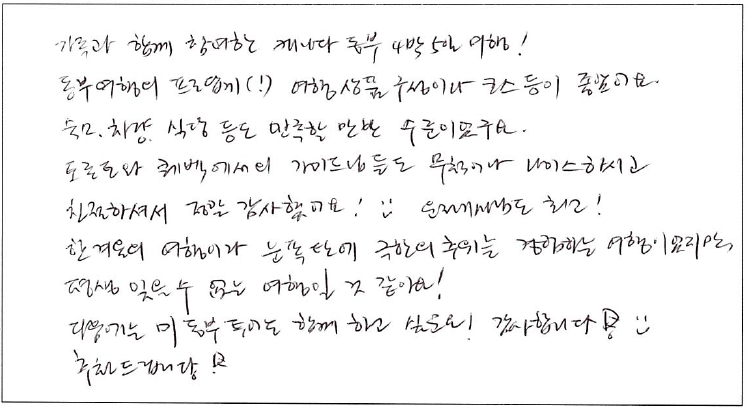 가족과 함께 참여한 캐나다 동부 4박5일 여행!
동부여행의 프로답게(!) 여행상품 구성이나 코스 등이 좋았어요.
숙소, 차량, 식당 등도 만족할 만한 수준이었구요.
토론토와 퀘벡에서의 가이드님들도 무척이나 나이스하시고
친절하셔서 정말 감사했어요! :) 운전기사님도 최고!
한겨울의 여행이라 눈폭탄에 극한의 추위는 경험하는 여행이었지만,
평생 잊을 수 없는 여행일 것 같아요!
다음에는 미동부 투어도 함께 하고 싶군요! 감사합니다 :)
추천드립니당!